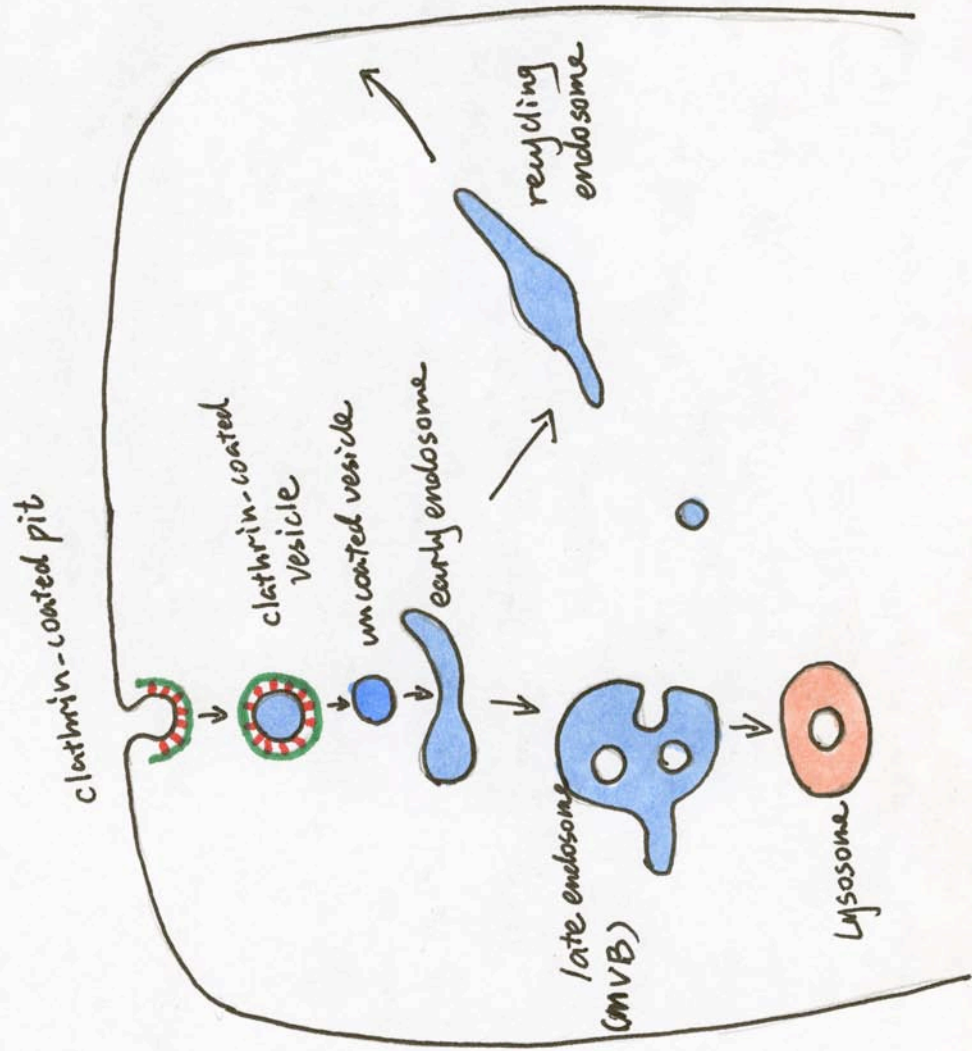 clathrin-coated pit
clathrin-coated
vesicle
uncoated vesicle
early endosome
recycling
endosome
late endosome
(MVB)
Lysosome